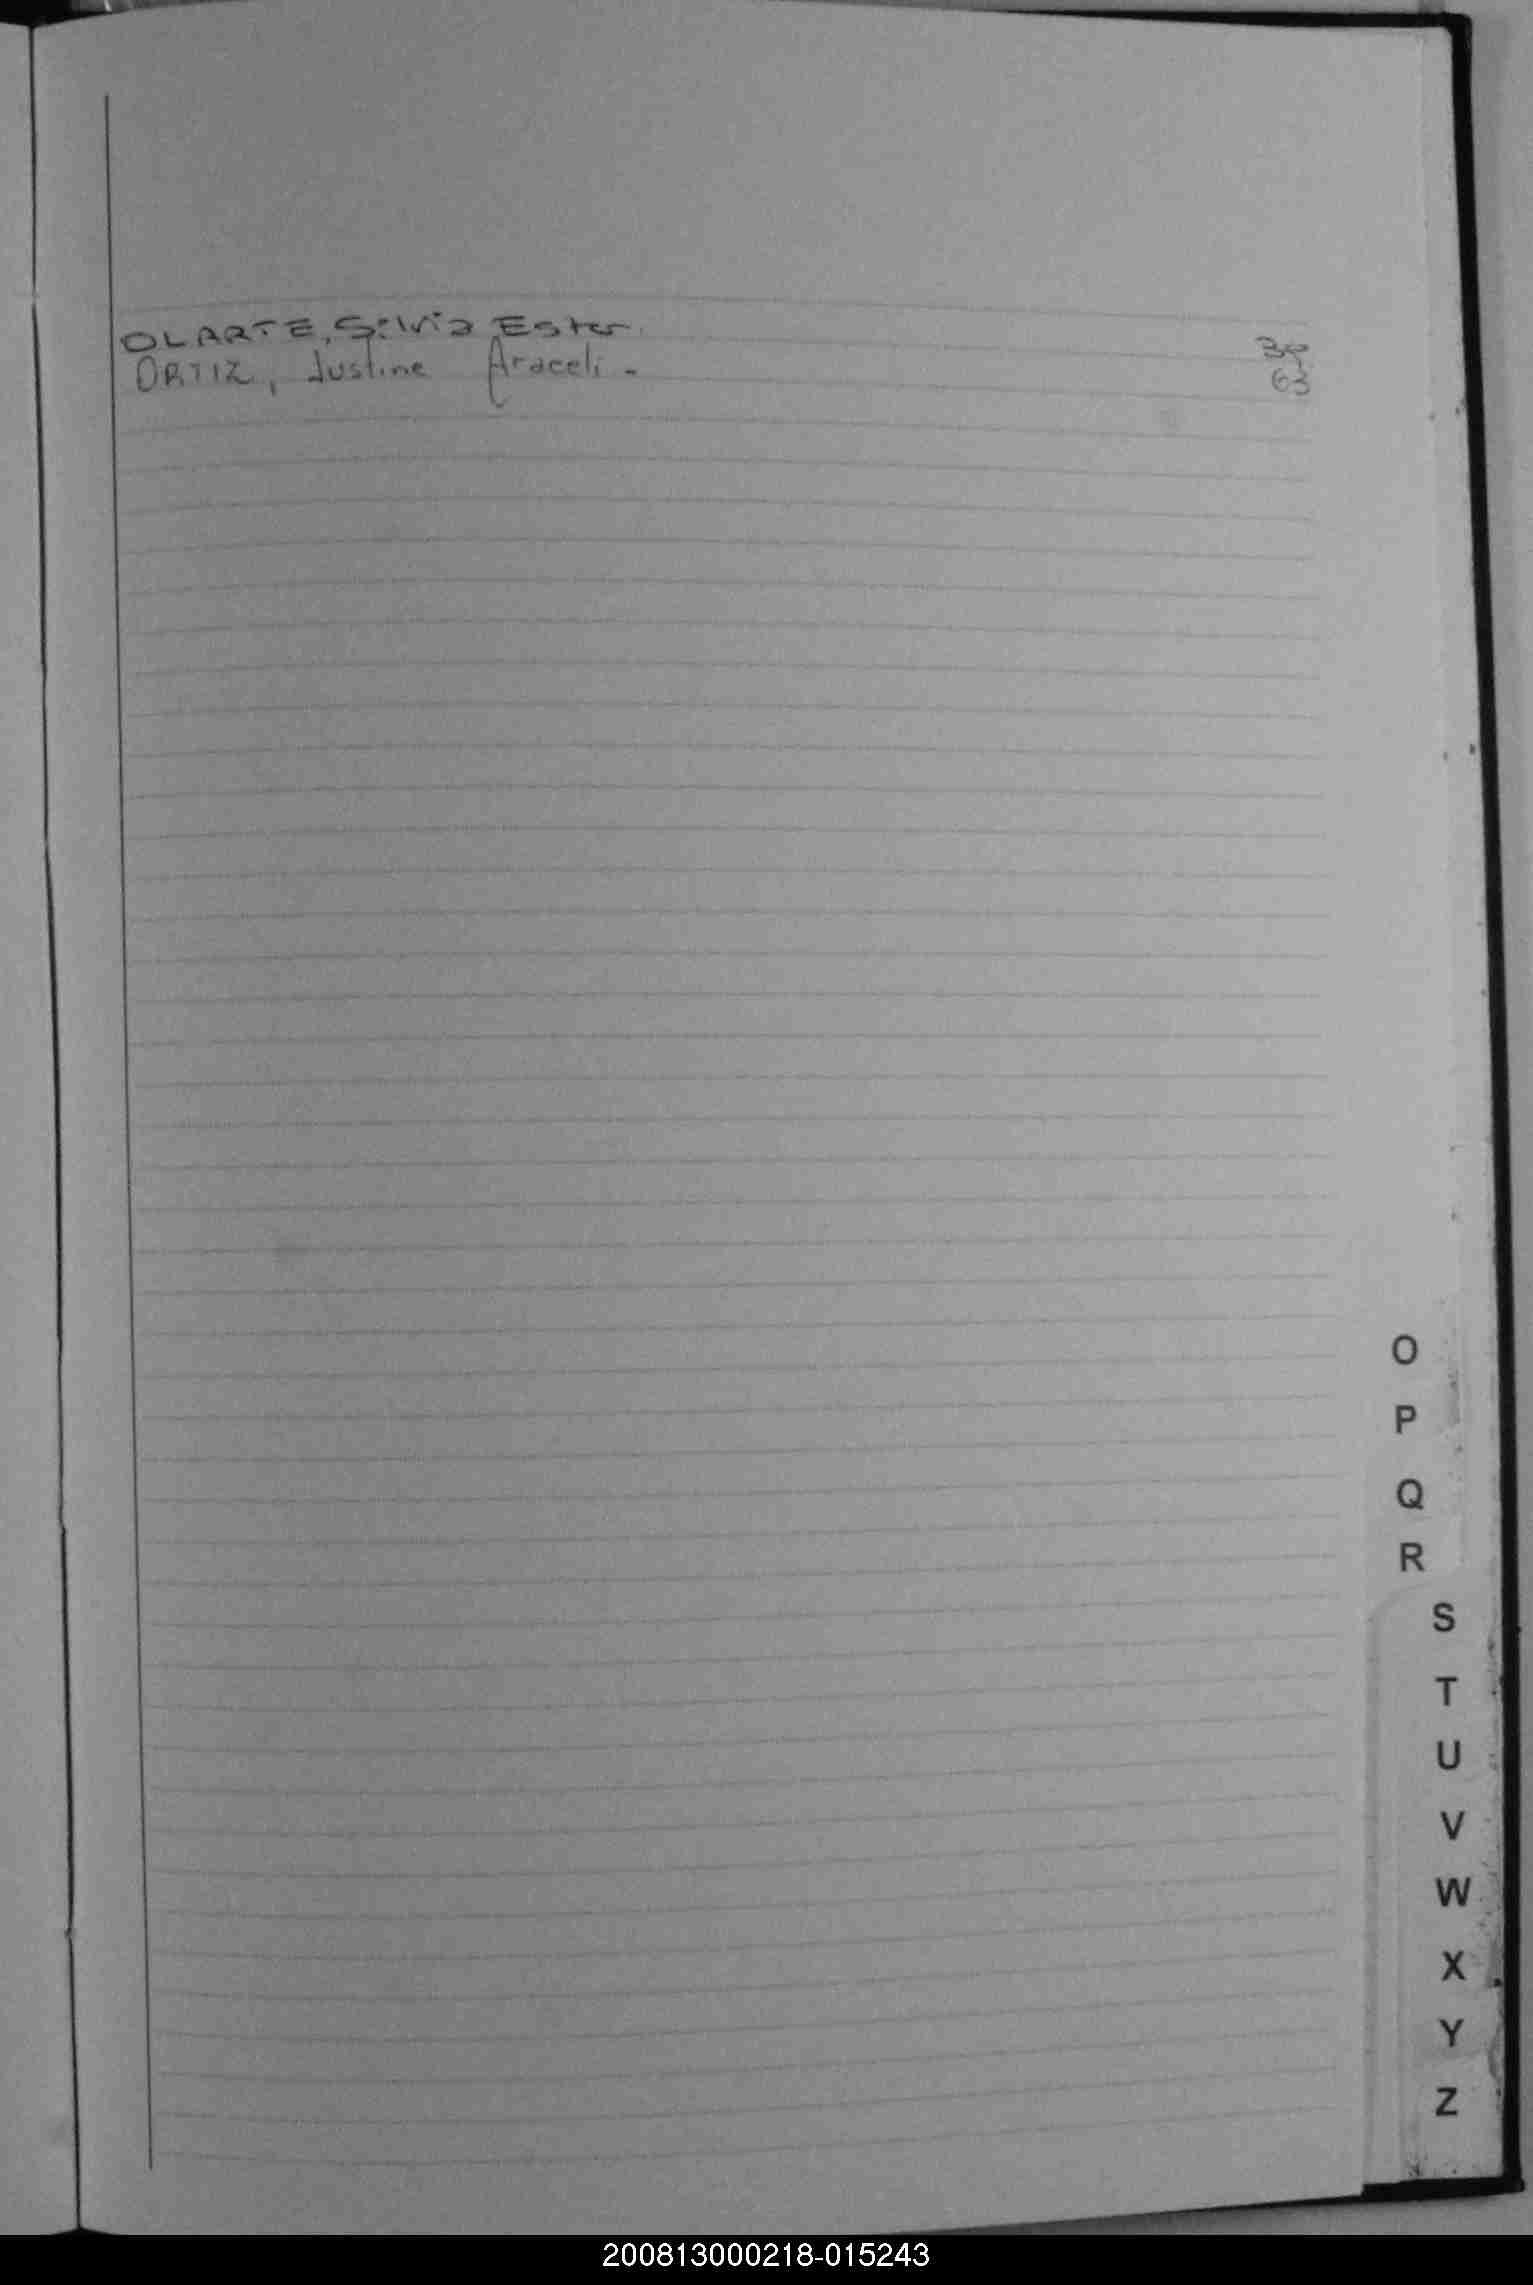 OLARTE, Silvia Ester.
ORTIZ, Justine Araceli.- 63
O
P
Q
R
S
T
U
V
W
X
Y
Z
200813000218-015243